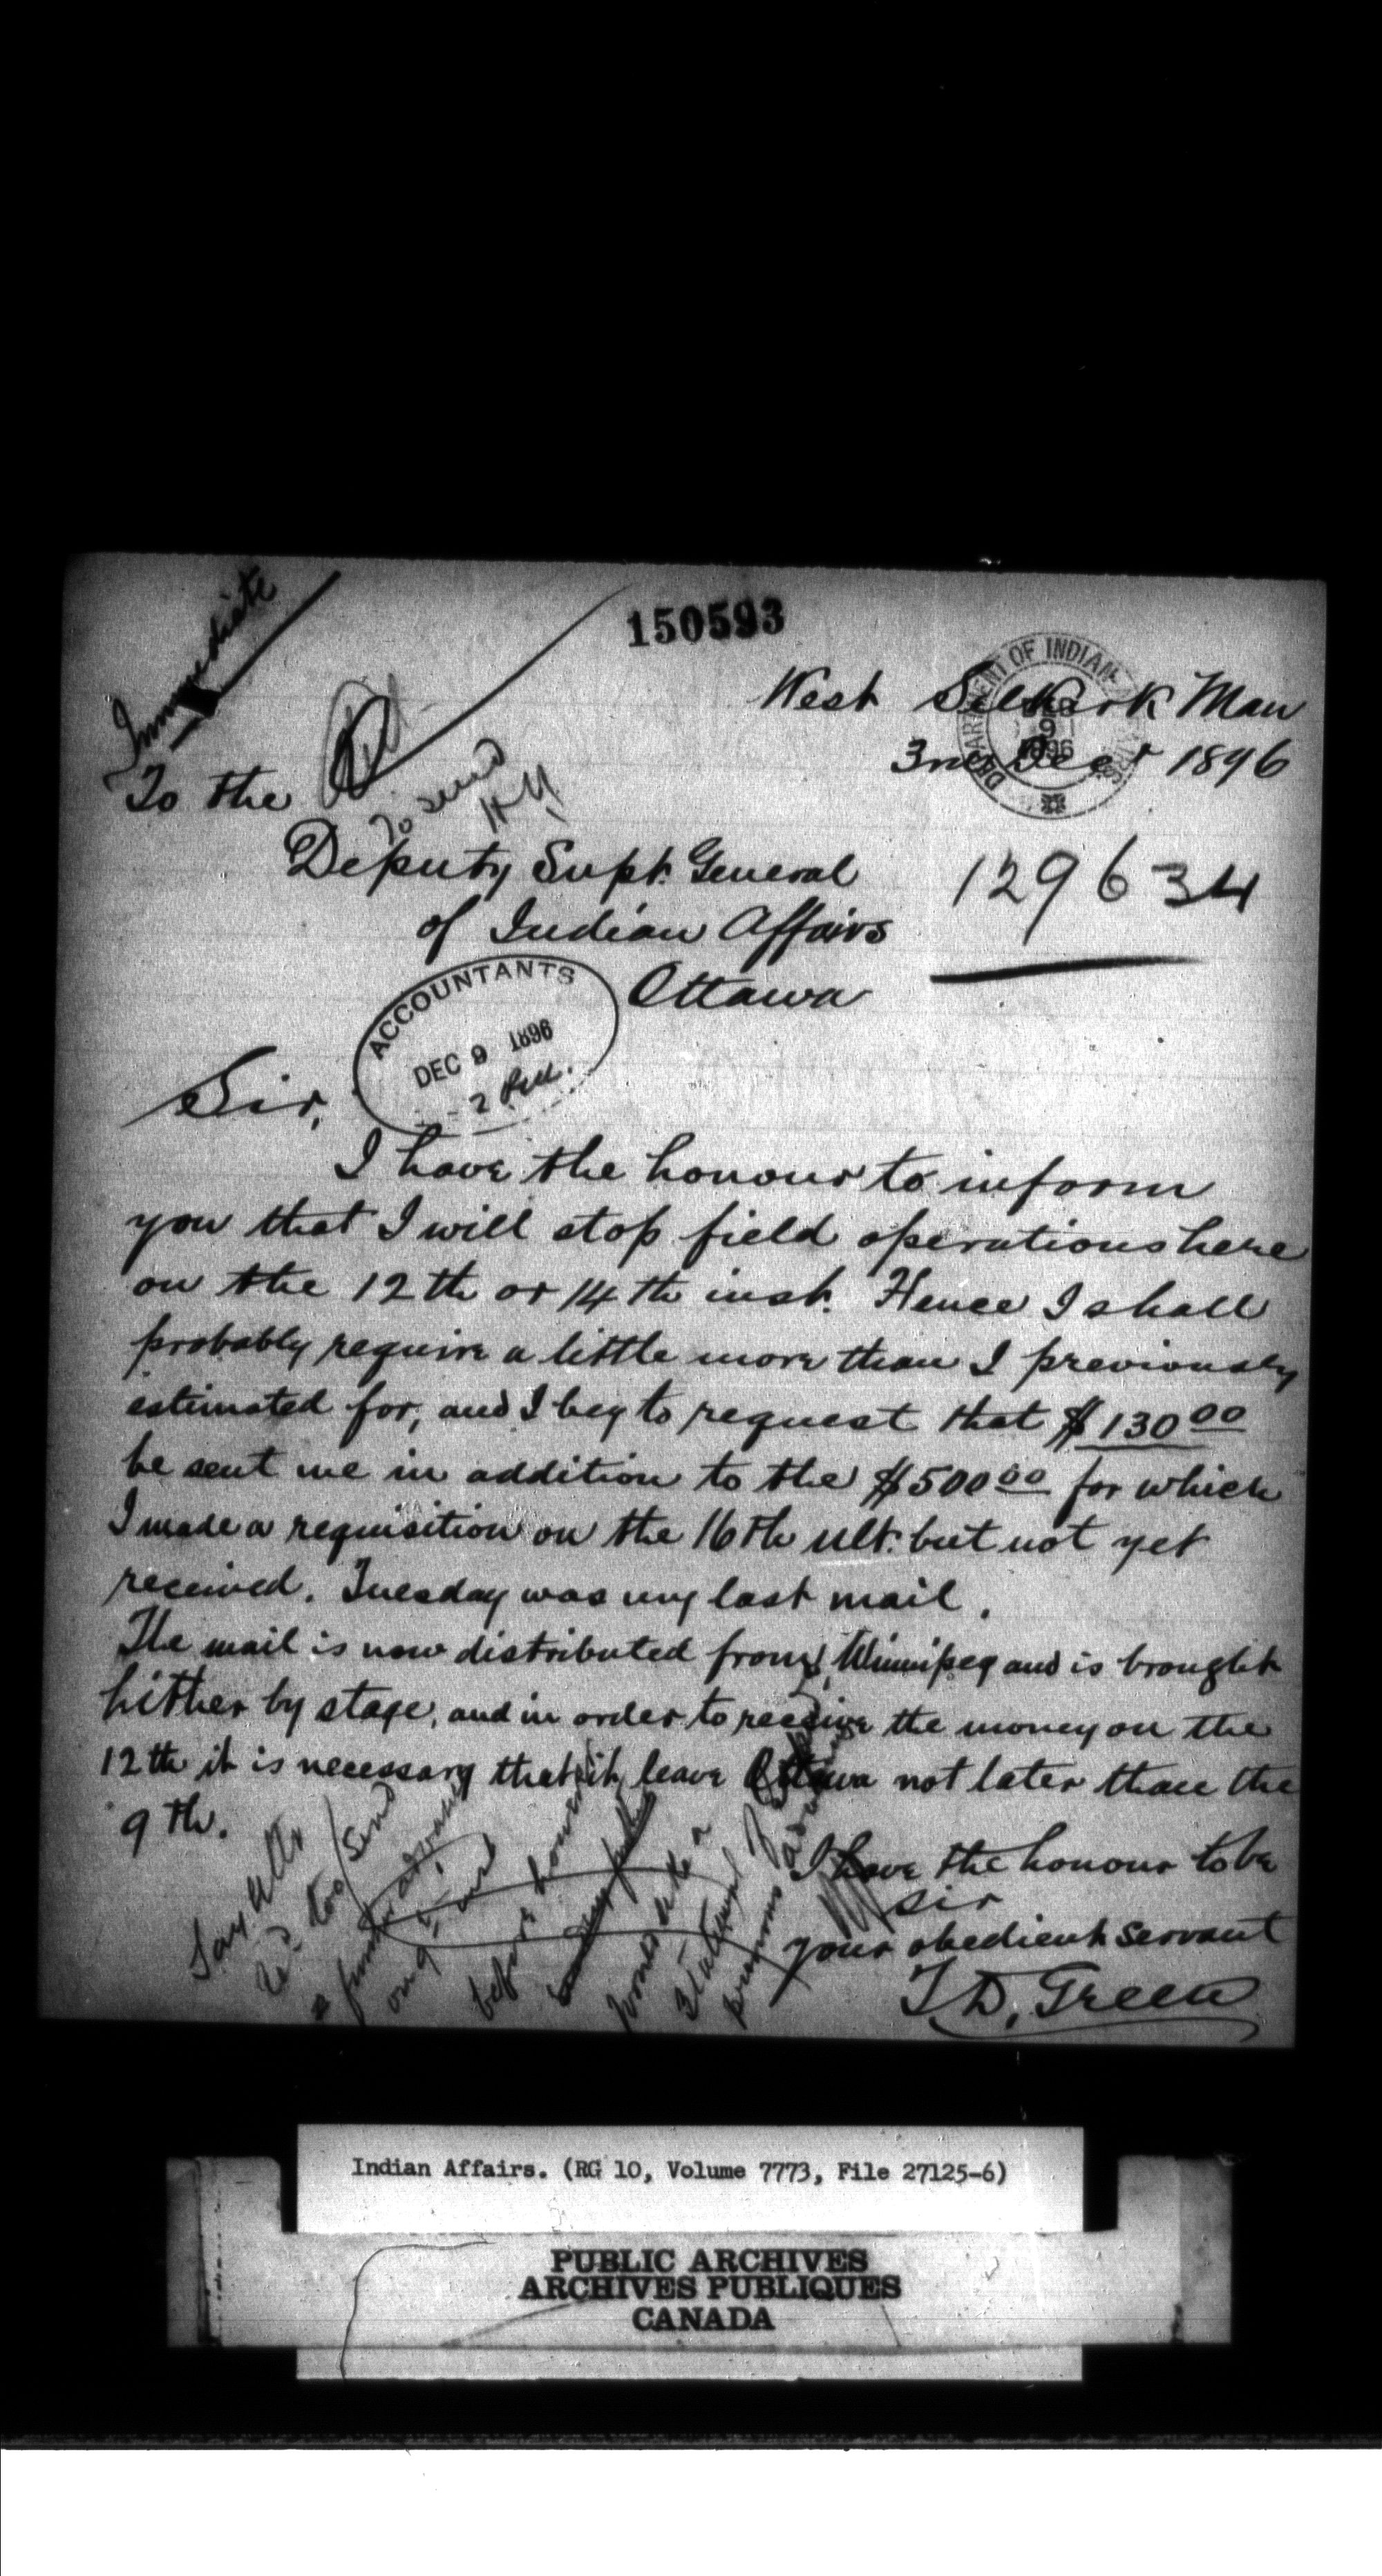 150593
Immediate
West Selkirk Man
3rd Dect 1896
DEPARTMENT OF INDIAN AFFAIRS
9
1896
To the
To send
Deputy Supt. General
129634
of Indian Affairs
Ottawa
ACCOUNTANTS
DEC 9 1896
Sir,
I have the honour to inform
you that I will stop field operations here
on the 12th or 14th inst. Hence I shall
probably require a little more than I previously
estimated for, and I beg to request that $130 00
be sent me in addition to the $500 00 for which
I made a requisition on the 16th ult. but not yet
received. Tuesday was my last mail.
The mail is now distributed from Winnipeg and is brought
hither by stage, and in order to receive the money on the
12th it is necessary that it leave Ottawa not later than the
9th.
I have the honour to be
sir
your obedient servant
T. D. Green
Indian Affairs. (RG 10, Volume 7773, File 27125-6)
PUBLIC ARCHIVES
ARCHIVES PUBLIQUES
CANADA